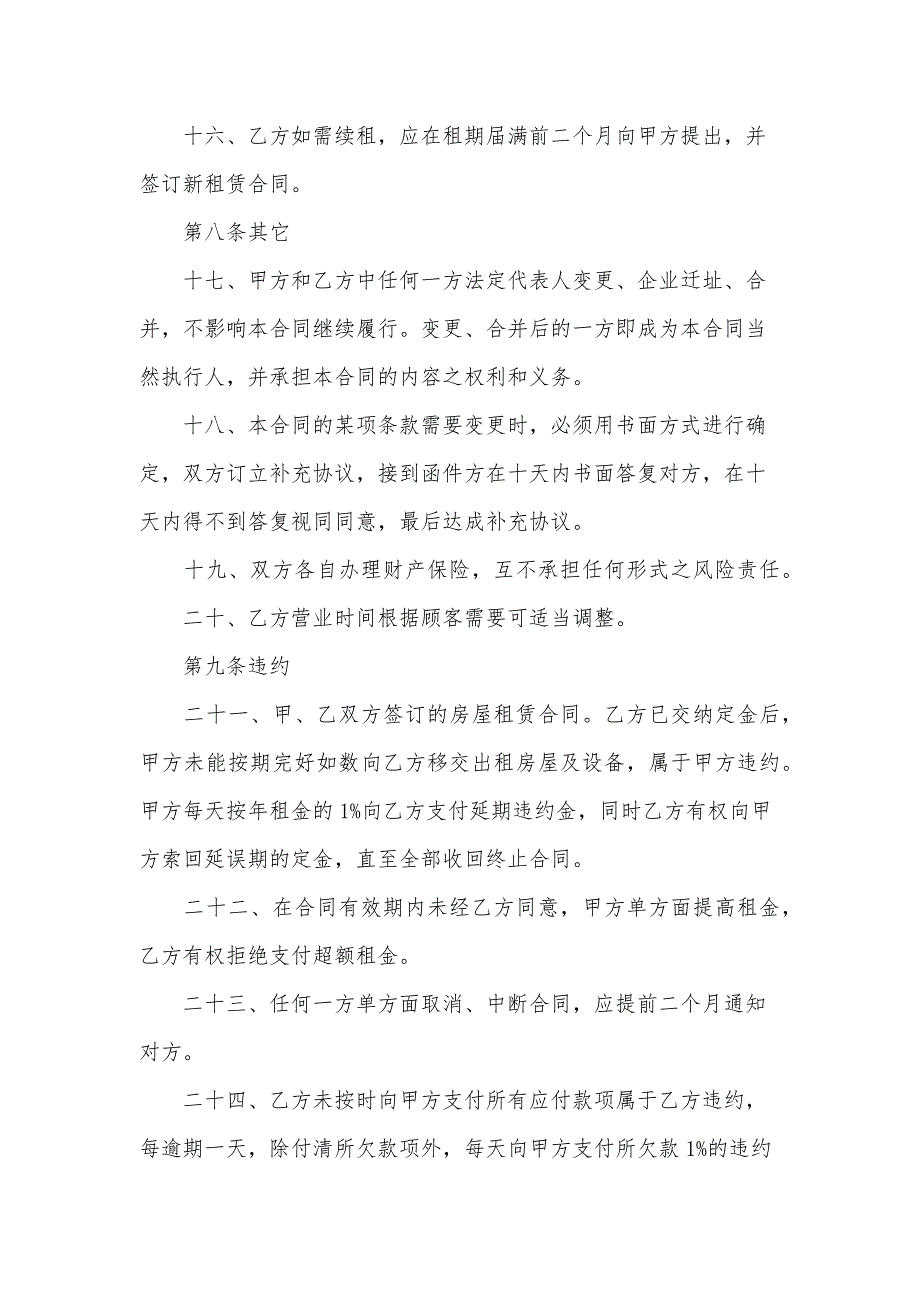 十六、乙方如需续租，应在租期届满前二个月向甲方提出，并
签订新租赁合同。
第八条其它
十七、甲方和乙方中任何一方法定代表人变更、企业迁址、合
并，不影响本合同继续履行。变更、合并后的一方即成为本合同当
然执行人，并承担本合同的内容之权利和义务。
十八、本合同的某项条款需要变更时，必须用书面方式进行确
定，双方订立补充协议，接到函件方在十天内书面答复对方，在十
天内得不到答复视同同意，最后达成补充协议。
十九、双方各自办理财产保险，互不承担任何形式之风险责任。
二十、乙方营业时间根据顾客需要可适当调整。
第九条违约
二十一、甲、乙双方签订的房屋租赁合同。乙方已交纳定金后，
甲方未能按期完好如数向乙方移交出租房屋及设备，属于甲方违约。
甲方每天按年租金的1%向乙方支付延期违约金，同时乙方有权向甲
方索回延误期的定金，直至全部收回终止合同。
二十二、在合同有效期内未经乙方同意，甲方单方面提高租金，
乙方有权拒绝支付超额租金。
二十三、任何一方单方面取消、中断合同，应提前二个月通知
对方。
二十四、乙方未按时向甲方支付所有应付款项属于乙方违约，
每逾期一天，除付清所欠款项外，每天向甲方支付所欠款1%的违约